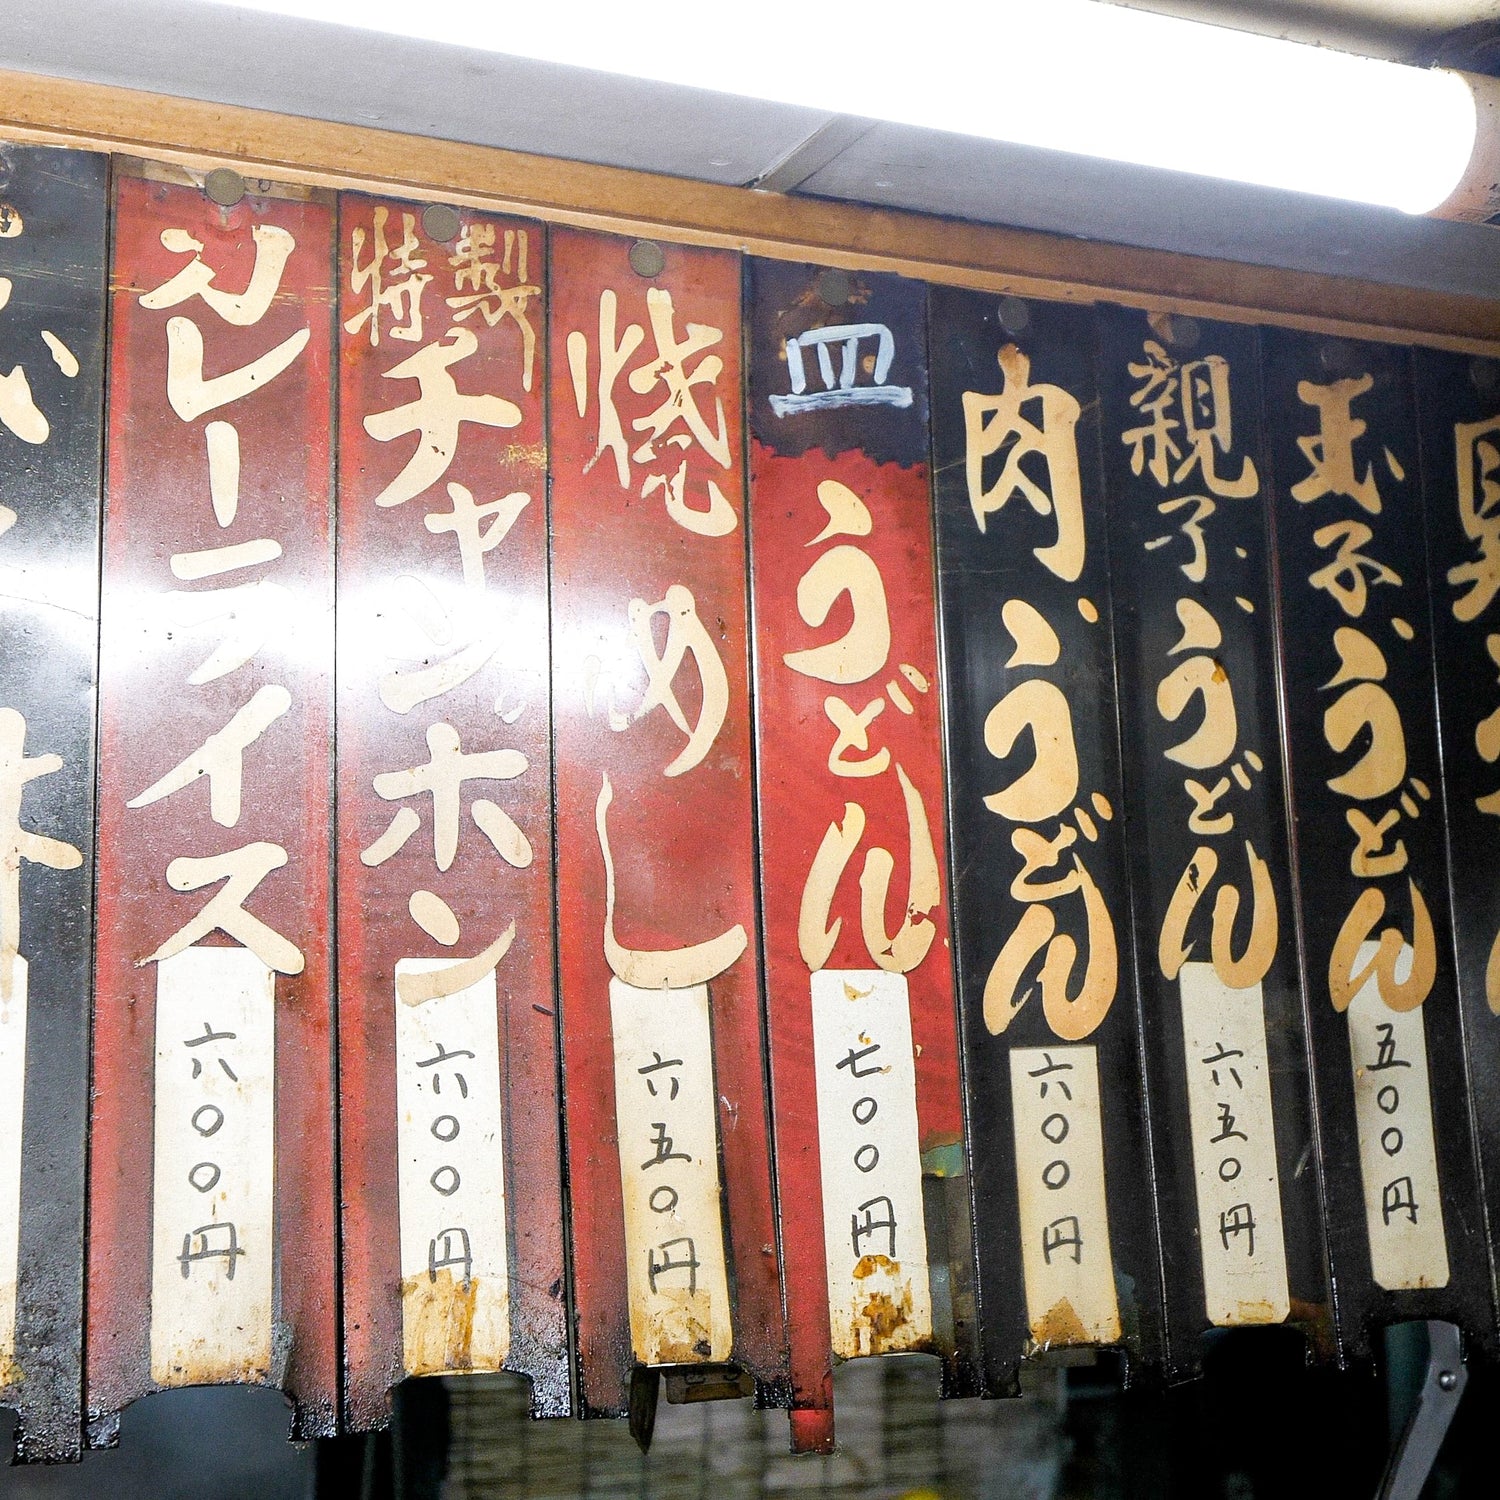 玉子うどん
五〇〇円
親子うどん
六五〇円
肉うどん
六〇〇円
皿うどん
七〇〇円
焼めし
六五〇円
特製チャンポン
六〇〇円
カレーライス
六〇〇円